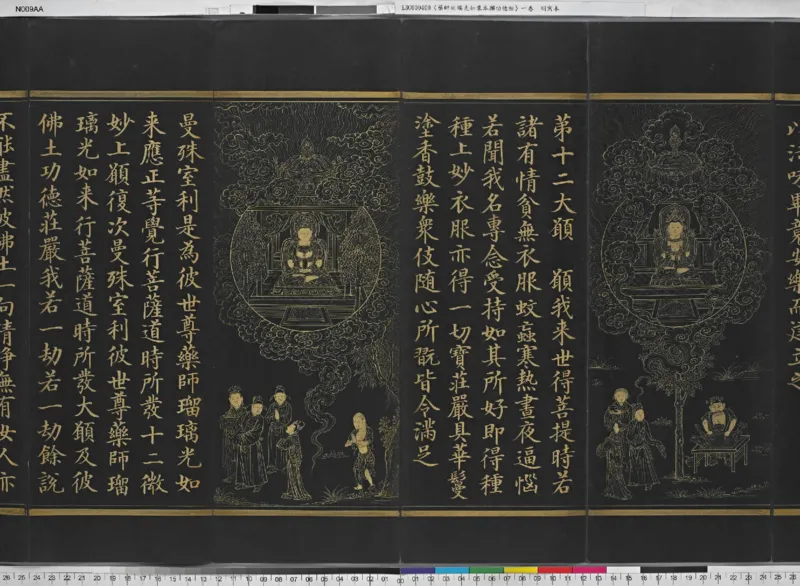 N009AA
《藥師琉璃光如来本願功德經》一卷 明寫本
以法味畢竟安樂而建立之
第十二大願 願我来世得菩提時若
諸有情貧無衣服蚊蝱寒熱晝夜逼惱
若聞我名專念受持如其所好即得種
種上妙衣服亦得一切寶莊嚴具華鬘
塗香鼓樂衆伎随心所翫皆令滿足
曼殊室利是為彼世尊藥師瑠璃光如
来應正等覺行菩薩道時所發十二微
妙上願復次曼殊室利彼世尊藥師瑠
璃光如来行菩薩道時所發大願及彼
佛土功德莊嚴我若一劫若一劫餘說
不能盡然彼佛土一向清淨無有女人亦